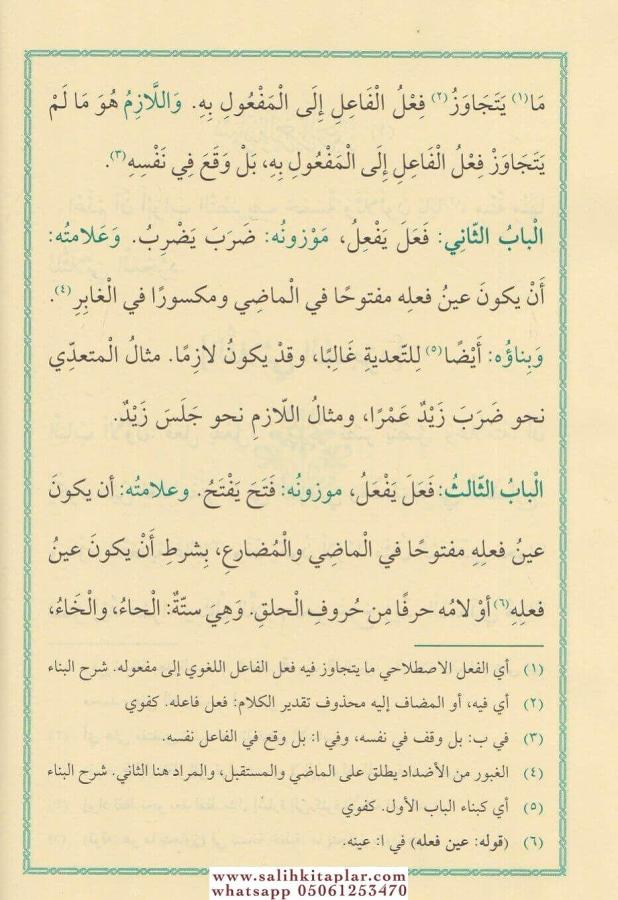 مَا(١) يَتَجَاوَزُ(٢) فِعْلُ الْفَاعِلِ إِلَى الْمَفْعُولِ بِهِ. وَاللَّازِمُ هُوَ مَا لَمْ
يَتَجَاوَزْ فِعْلُ الْفَاعِلِ إِلَى الْمَفْعُولِ بِهِ، بَلْ وَقَعَ فِي نَفْسِهِ(٣).
الْبابُ الثّانِي: فَعَلَ يَفْعِلُ، مَوْزونُه: ضَرَبَ يَضْرِبُ. وَعَلامتُه:
أَنْ يكونَ عينُ فعلِه مفتوحًا في الْماضِي ومكسورًا في الْغابِرِ(٤).
وَبِناؤُه: أَيْضًا(٥) لِلتّعديةِ غَالبًا، وقدْ يكونُ لازمًا. مثالُ الْمتعدِّي
نحو ضَرَبَ زَيْدٌ عَمْرًا، ومثالُ اللّازمِ نحو جَلَسَ زَيْدٌ.
الْبابُ الثّالثُ: فَعَلَ يَفْعَلُ، موزونُه: فَتَحَ يَفْتَحُ. وعلامتُه: أن يكونَ
عينُ فعلِهِ مفتوحًا في الْماضِي والْمُضارعِ، بِشرطِ أَنْ يكونَ عينُ
فعلِهِ(٦) أوْ لامُه حرفًا مِن حُروفِ الْحلقِ. وَهِيَ ستّةٌ: الْحاءُ، والْخَاءُ،
(١) أي الفعل الاصطلاحي ما يتجاوز فيه فعل الفاعل اللغوي إلى مفعوله. شرح البناء
(٢) أي فيه، أو المضاف إليه محذوف تقدير الكلام: فعل فاعله. كفوي
(٣) في ب: بل وقف في نفسه، وفي ا: بل وقع في الفاعل نفسه.
(٤) الغبور من الأضداد يطلق على الماضي والمستقبل، والمراد هنا الثاني. شرح البناء
(٥) أي كبناء الباب الأول. كفوي
(٦) (قوله: عين فعله) في ا: عينه.
www.salihkitaplar.com
whatsapp 05061253470